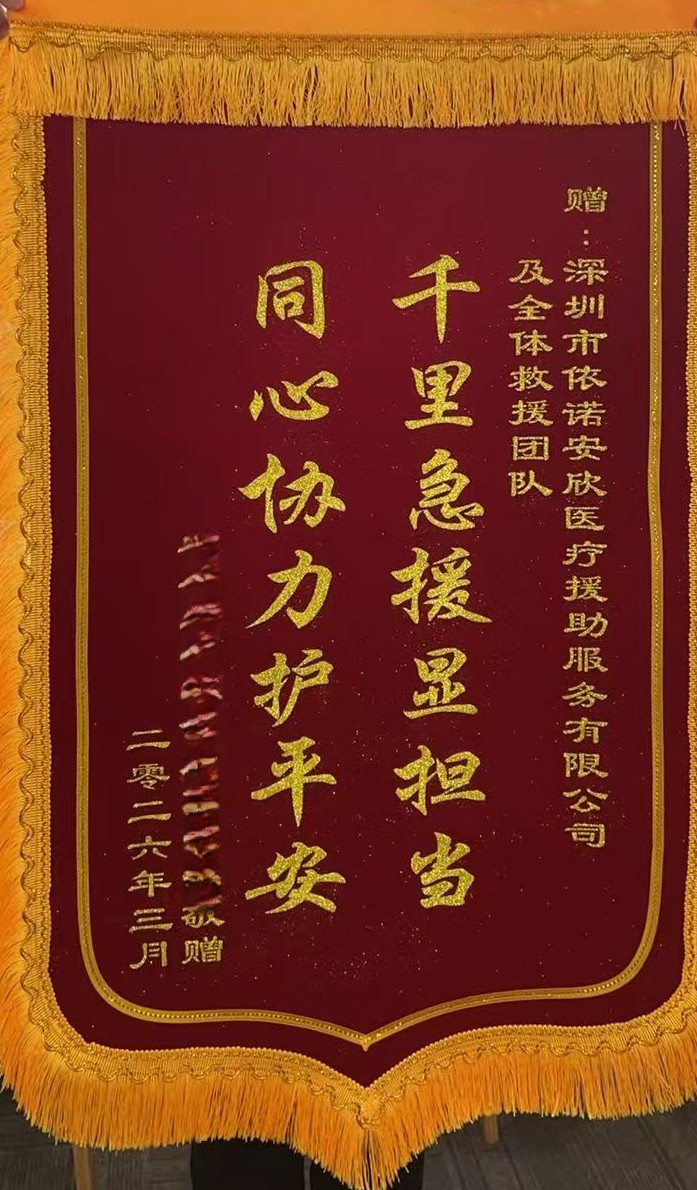 赠：深圳市依诺安欣医疗援助服务有限公司
及全体救援团队
千里急援显担当
同心协力护平安
敬赠
二零二六年三月